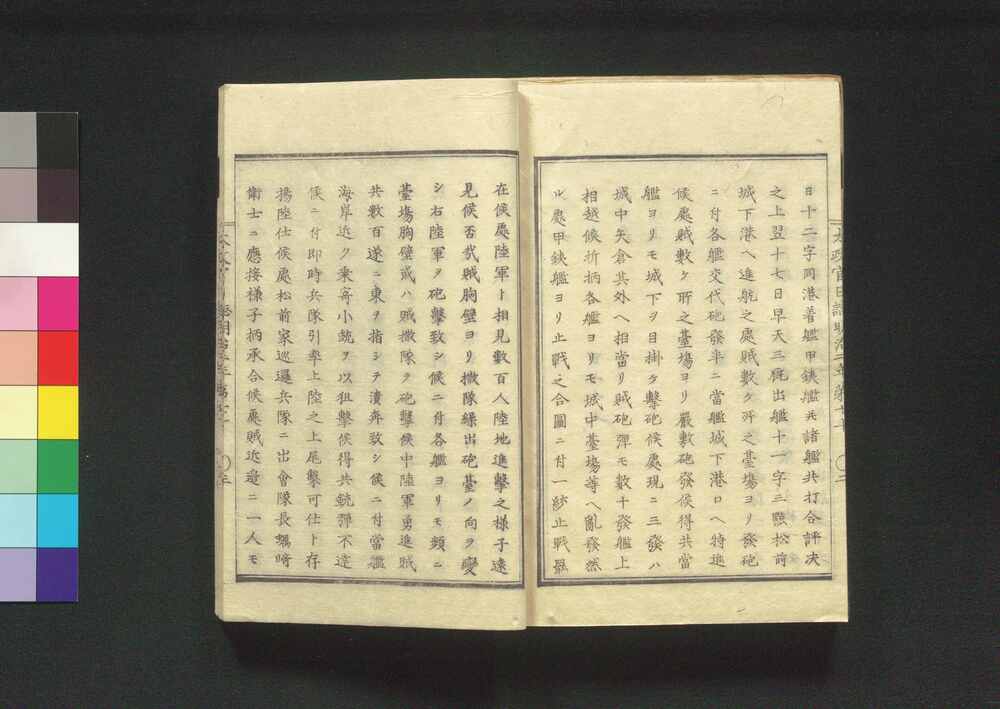 日十二字同港着艦甲鉄艦共諸艦共打合評决
之上翌十七日早天三厩出艦十一字三點松前
城下港ヘ進航之處賊數ケ所之臺塲ヨリ發砲
ニ付各艦交代砲發半ニ當艦城下港口ヘ特進
候處賊數ケ所之臺塲ヨリ嚴敷砲發候得共當
艦ヨリモ城下ヲ目掛ケ擊砲候處現ニ三發ハ
城中矢倉其外ヘ相當リ賊砲彈モ數十發艦上
相越候折柄各艦ヨリモ城中臺塲等ヘ亂發然
ル處甲鉄艦ヨリ止戰之合圖ニ付一紗止戰罷
在候處陸軍ト相見數百人陸地進擊之様子遠
見候否哉賊胸壁ヨリ撒隊繰出砲臺ノ向ヲ變
シ右陸軍ヲ砲擊致シ候ニ付各艦ヨリモ頻ニ
臺塲胸壁或ハ賊撒隊ヲ砲擊候中陸軍勇進賊
共數百遂ニ東ヲ指シテ潰奔致シ候ニ付當艦
海岸近ク乘寄小銃ヲ以狙擊候得共銃彈不達
候ニ付即時兵隊引率上陸之上尾擊可仕ト存
揚陸仕候處松前家巡邏兵隊ニ出會隊長蠣崎
衛士ニ應接様子柄承合候處賊近邊ニ一人モ
太政官日誌明治二年 第